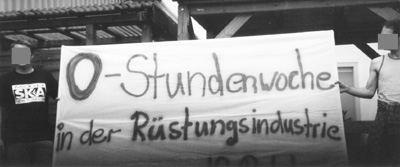 O-Stundenwoche
in der Rüstungsindustrie
SKA